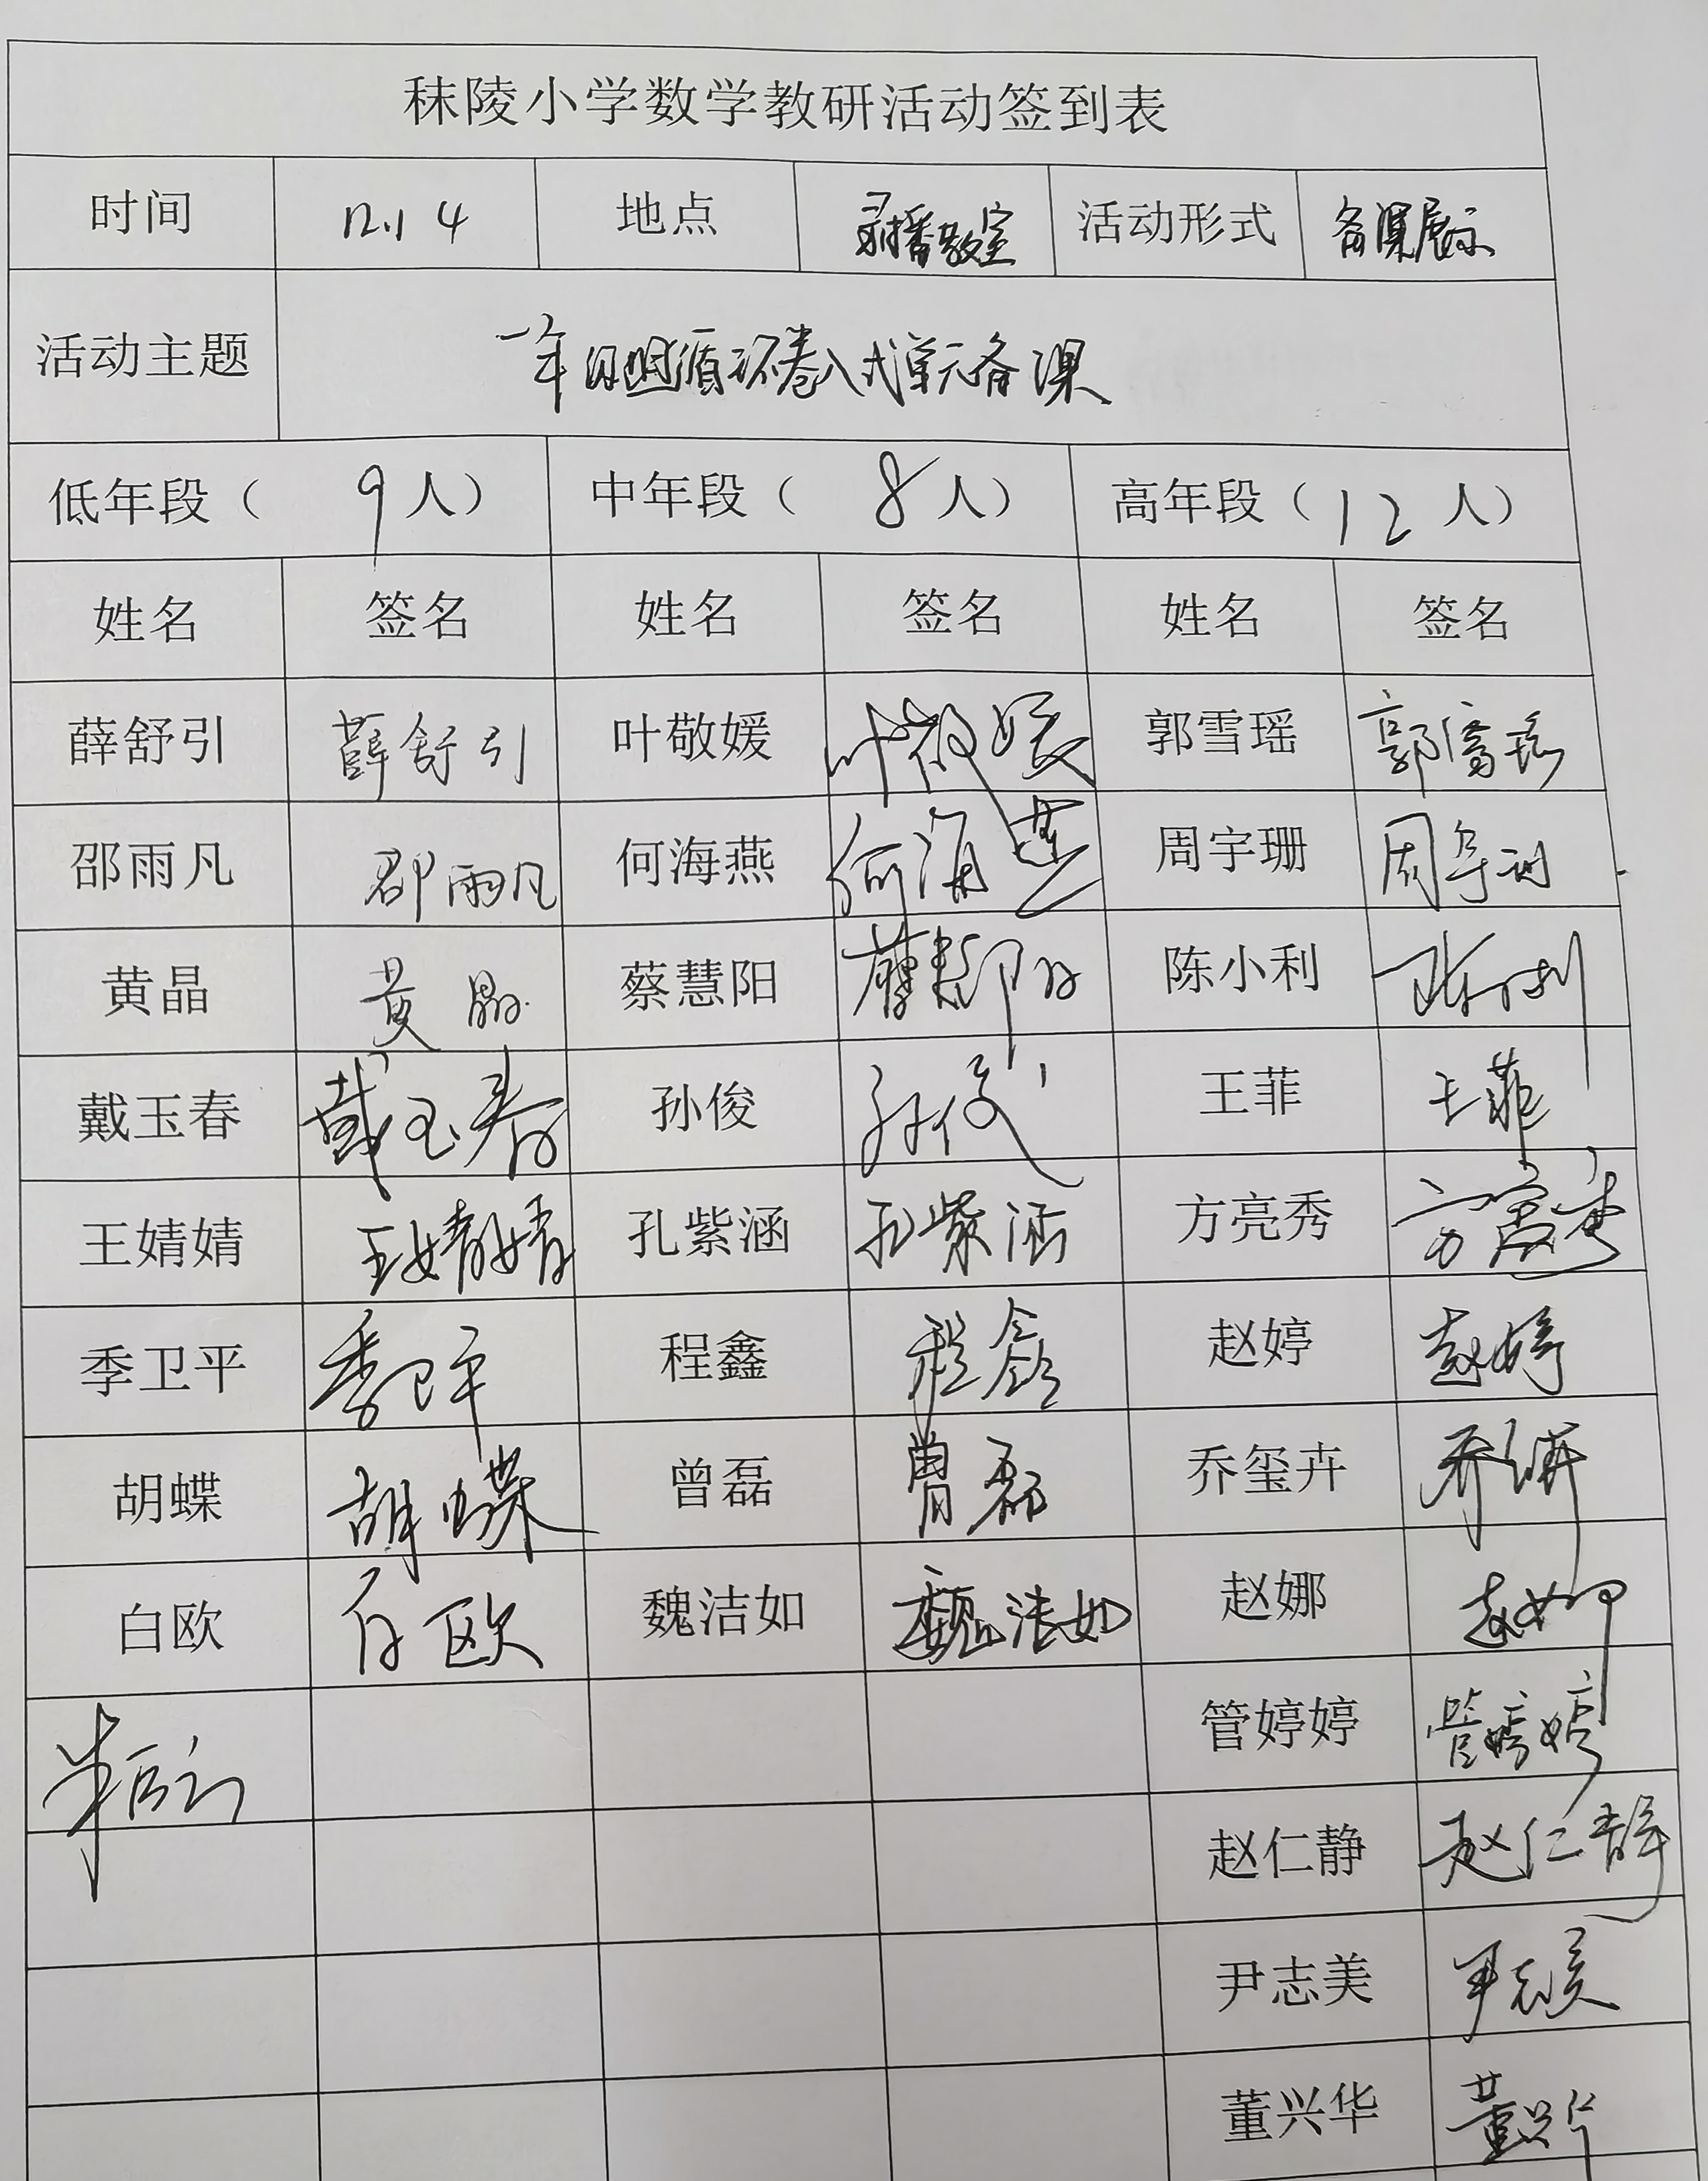 秣陵小学数学教研活动签到表
时间 12.14 地点 录播教室 活动形式 备课展示
活动主题 一年级组循环卷入式单元备课
低年段（ 9 人） 中年段（ 8 人） 高年段（ 12 人）
姓名 签名 姓名 签名 姓名 签名
薛舒引 薛舒引 叶敬媛 叶敬媛 郭雪瑶 郭雪瑶
邵雨凡 邵雨凡 何海燕 何海燕 周宇珊 周宇珊
黄晶 黄晶 蔡慧阳 蔡慧阳 陈小利 陈小利
戴玉春 戴玉春 孙俊 孙俊 王菲 王菲
王婧婧 王婧婧 孔紫涵 孔紫涵 方亮秀 方亮秀
季卫平 季卫平 程鑫 程鑫 赵婷 赵婷
胡蝶 胡蝶 曾磊 曾磊 乔玺卉 乔玺卉
白欧 白欧 魏洁如 魏洁如 赵娜 赵娜
管婷婷 管婷婷
赵仁静 赵仁静
尹志美 尹志美
董兴华 董兴华